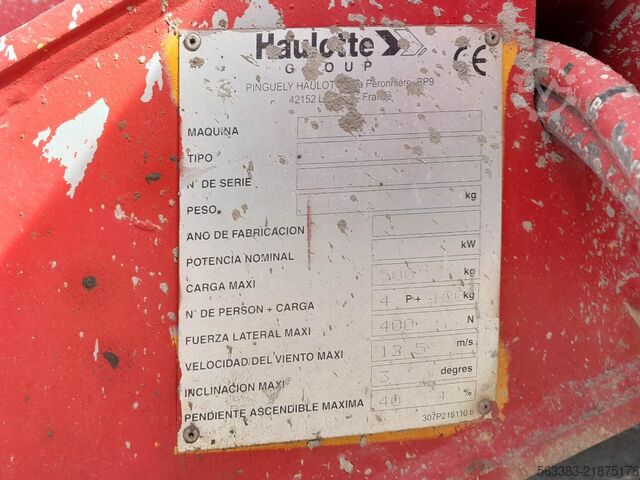 Haulotte
GROUP
CE
PINGUELY HAULOTTE Péronnière BP9
42152 L France
MAQUINA
TIPO
N° DE SERIE
PESO kg
ANO DE FABRICACION
POTENCIA NOMINAL kW
CARGA MAXI 500 kg
N° DE PERSON + CARGA 4 P+ kg
FUERZA LATERAL MAXI 400 N
VELOCIDAD DEL VIENTO MAXI 12,5 m/s
INCLINACION MAXI 3 degres
PENDIENTE ASCENDIBLE MAXIMA 40 %
307P218110 b
563383-21875178